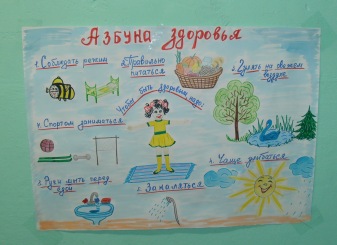 Азбука здоровья
1. Соблюдать режим
2. Правильно
питаться
3. Гулять на свежем
воздухе
Чтобы быть здоровым надо:
4. Спортом заниматься
4. Чаще улыбаться
Руки мыть перед
едой
Закаляться